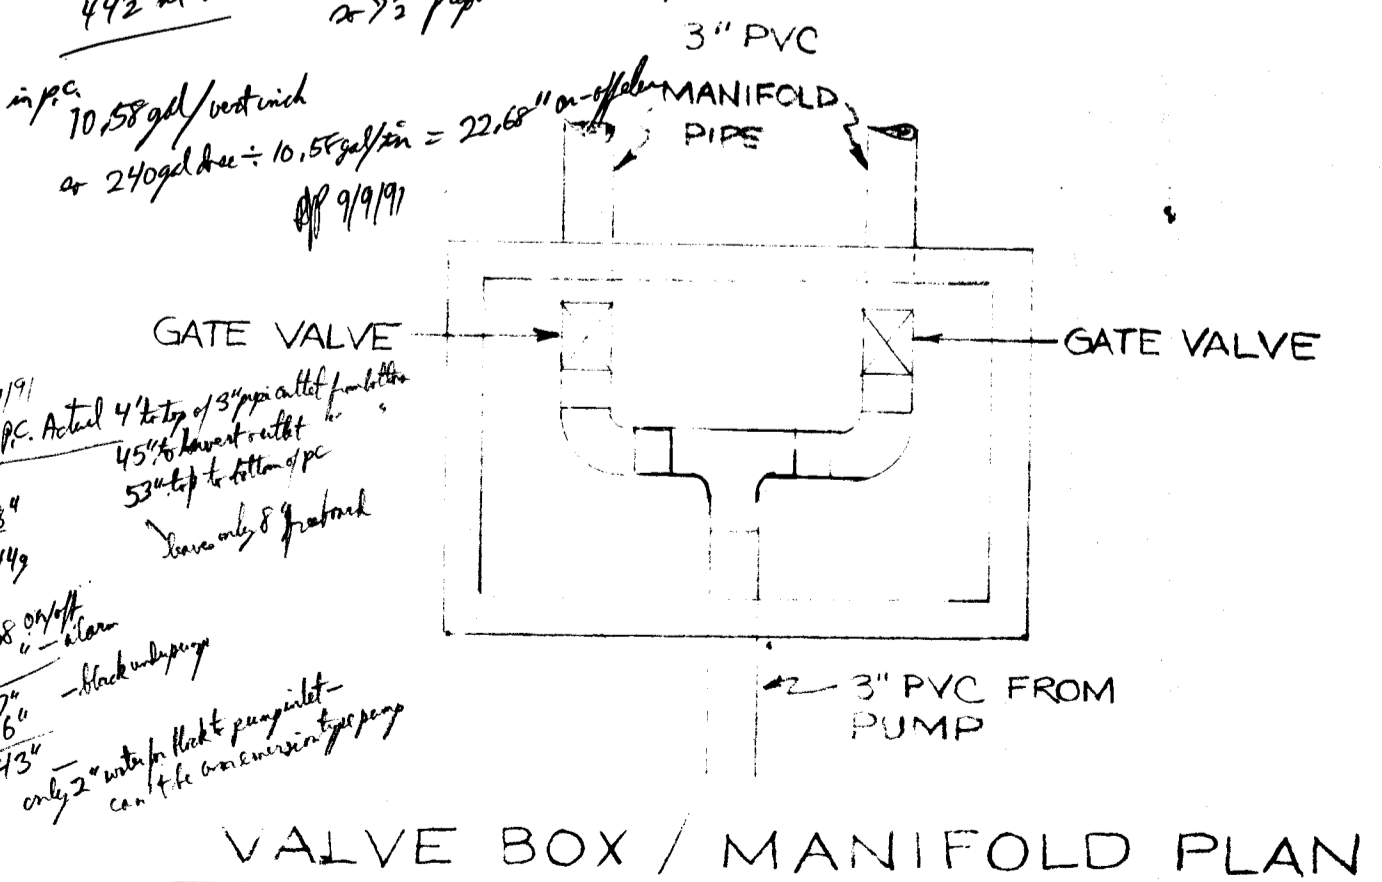 492
3" PVC
MANIFOLD
PIPE
in p.c.
10,58 gal/vert inch
or 240 gal dose ÷ 10,58 gal/in = 22,68" on-off
9/9/91
GATE VALVE
GATE VALVE
/91
P.C. Actual 4' to top of 3" pipe outlet from bottom
45" to lowest outlet " "
53" top to bottom of pc
leaves only 8" freeboard
on/off
" - alarm
- block under pump
6"
43" -
only 2" water for block to pump inlet -
can't be an immersion type pump
3" PVC FROM
PUMP
VALVE BOX / MANIFOLD PLAN